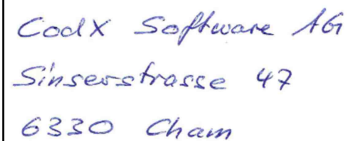 CodX Software AG
Sinserstrasse 47
6330 Cham